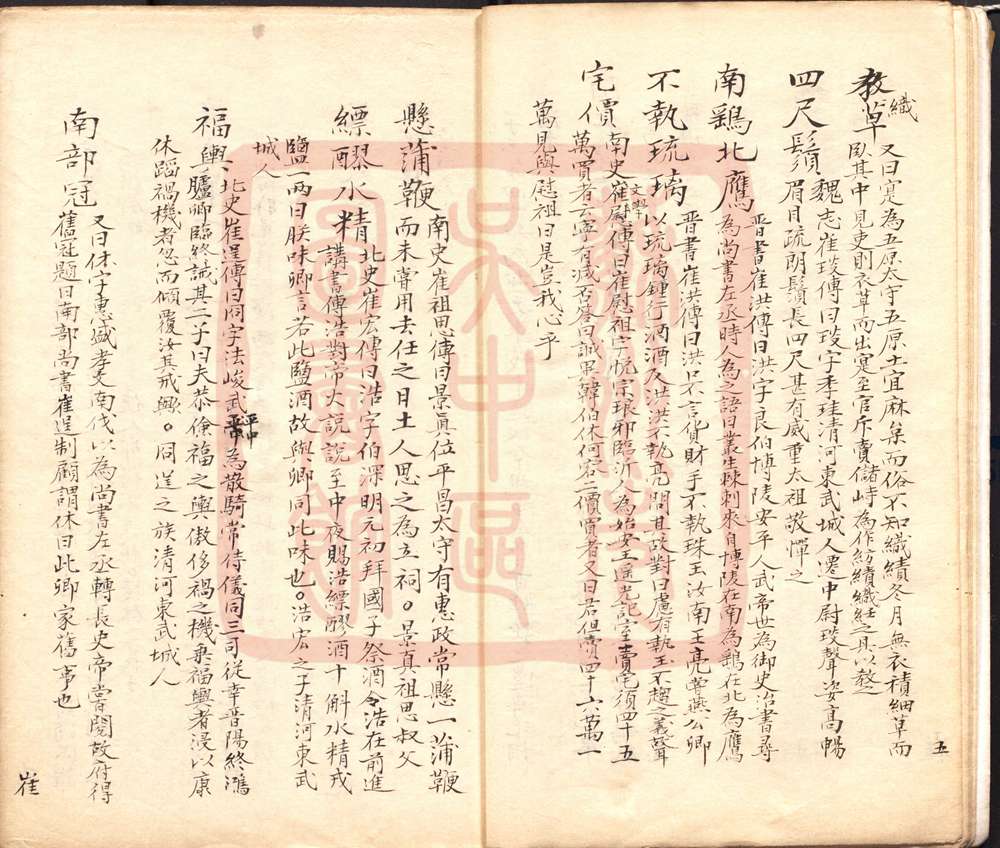 教織草又曰寔為五原太守五原土宜麻枲而俗不知織績冬月無衣積細草而
臥其中見吏則衣草而出寔至官斥賣儲峙為作紡績織紝之具以教之
四尺鬚魏志崔琰傳曰琰字季珪清河東武城人遷中尉琰聲姿高暢
眉目疏朗鬚長四尺甚有威重太祖敬憚之
南鷂北鷹晉書崔洪傳曰洪字良伯博陵安平人武帝世為御史治書尋
為尚書左丞時人為之語曰叢生棘刺來自博陵在南為鷂在北為鷹
不執琉璃晉書崔洪傳曰洪口不言貨財手不執珠玉汝南王亮常燕公卿
以琉璃鍾行酒酒及洪洪不執亮問其故對曰慮有執玉不趨之義
宅價南史文學崔慰祖傳曰崔慰祖字悅宗琅邪臨沂人為始安王遙光記室賣宅須四十五
萬買者云寧有減否答曰誠異韓伯休何容二價買者又曰君但賣四十六萬一
萬見與慰祖曰是豈我心乎
懸蒲鞭南史崔祖思傳曰景真位平昌太守有惠政常懸一蒲鞭
而未嘗用去任之日土人思之為立祠○景真祖思叔父
縹醪水精北史崔宏傳曰浩字伯深明元初拜國子祭酒令浩在前進
講書傳浩對帝大說說至中夜賜浩縹醪酒十斛水精戎
鹽一兩曰朕味卿言若此鹽酒故與卿同此味也○浩宏之子清河東武
城人
福輿北史崔逞傳曰冏字法峻武平中為散騎常侍儀同三司從幸晉陽終鴻
臚卿臨終誡其二子曰夫恭儉福之輿傲侈禍之機乘福輿者浸以康
休蹈禍機者忽而傾覆汝其戒歟○冏逞之族清河東武城人
南部冠又曰休字惠盛孝文南伐以為尚書左丞轉長史帝嘗閱故府得
舊冠題曰南部尚書崔逞制顧謂休曰此卿家舊事也
五
崔